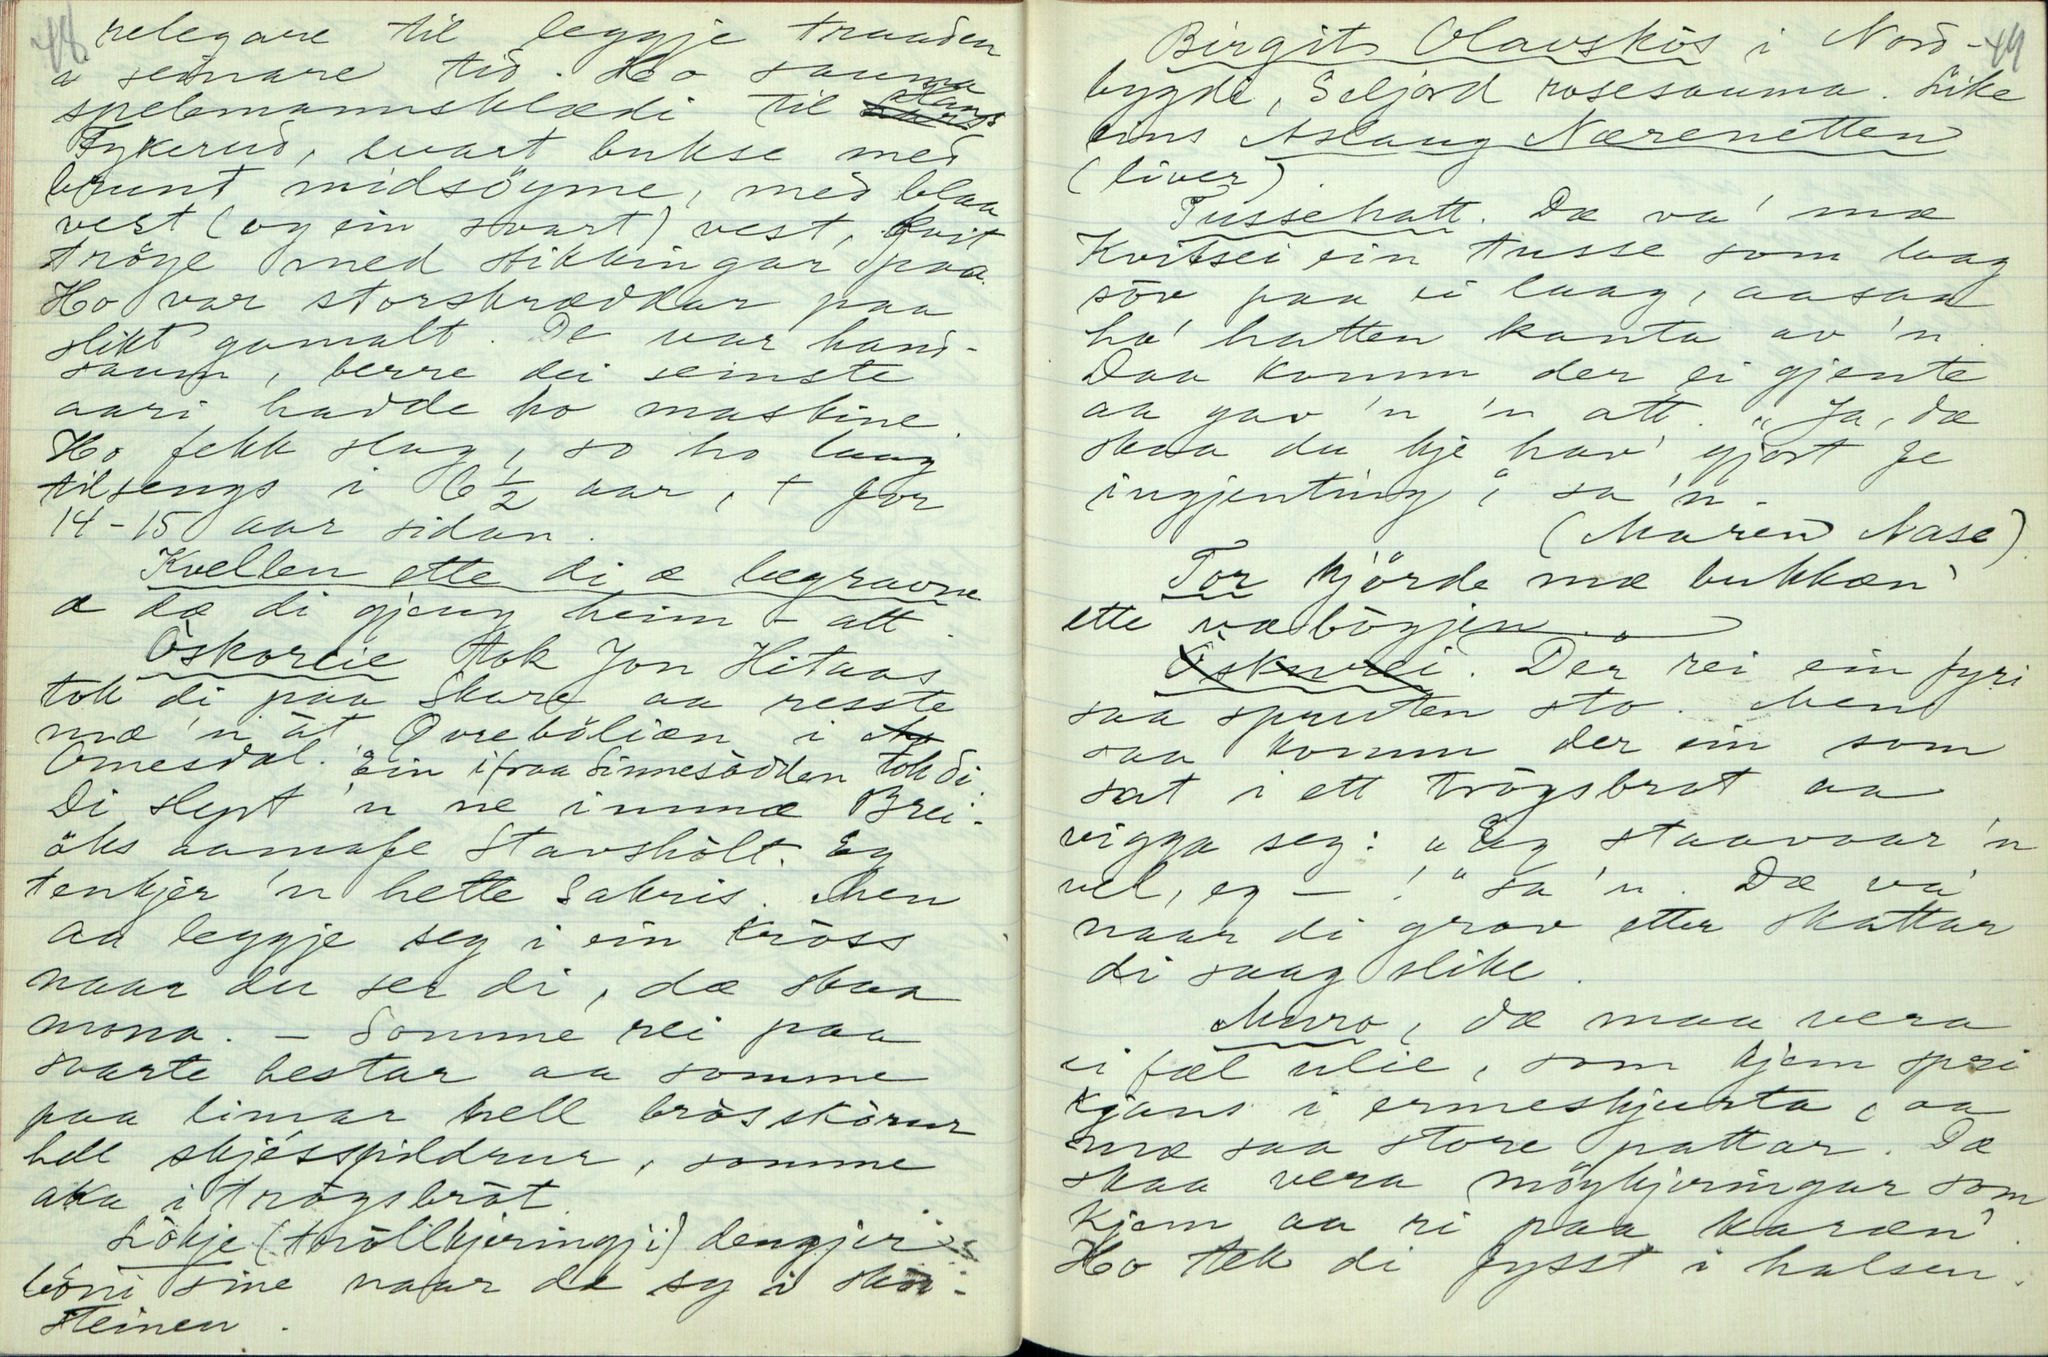 48
relegare til leggje traaden
i seinare tid. Ho sauma
spelemannsklædi til Lars
Fykerud, svart bukse med
brunt midsöyme, med blaa
vest (og ein svart) vest, kvit
tröye med stikkingar paa.
Ho var storskræddar paa
slikt gamalt. De var hand-
saum, berre dei seinste
aari hadde ho maskine.
Ho fekk slag, so ho laag
tilsengs i 6 1/2 aar, + for
14-15 aar sidan.
Kvellen ette di æ begravne
æ dæ di gjeng heim - att.
Öskoreie tok Jon Hitaas
tok di paa Skare aa resste
mæ 'n åt Övreböliæn i
Omesdal. Ein ifraa Sinnesödden tok di.
Di slept 'n ne innmæ Brei-
öks aamafe Stavsholt. Eg
tenkjer 'n hette Sakris. Men
aa leggje seg i ein kross
naar du ser di, dæ skaa
mona. - Somme rei paa
svarte hestar aa somme
paa limar hell brösskörur
hell skjésspildrur, somme
aka i trögsbröt.
Lökje (tröllkjeringji) dengjer
böni sine naar de sy i skör-
steinen.
49
Birgit Olavskås i Nord-
bygdi, Seljord rosesauma. Like
eins Aslaug Nærenetten
(liver).
Tussehatt. Dæ va' mæ
Kvitsei ein tusse som laag
söv paa ei laag, aasaa
ha' hatten kanta av 'n.
Daa komm der ei gjente
aa gav 'n 'n att. "Ja, dæ
skaa du kje hav' gjort fe
ingjenting", sa 'n.
(Maren Nase)
Tor kjörde mæ bukkæn'
ette væbögjen.
Öskurei. Der rei ein fyri
saa spruten sto. Men
saa komm der ein som
sat i ett trögsbrot aa
vigga seg: "Eg staavaar 'n
vel, eg - !" sa 'n. Dæ va'
naar di grov etter skattar
di saag slike.
Muro, dæ maa vera
ei fæl ulie, som kjem spri
kjans i ermeskjurta, aa
mæ saa store pattar. Dæ
skaa vera möykjeringar som
kjem aa ri paa karæn'.
Ho tek di fysst i halsen.